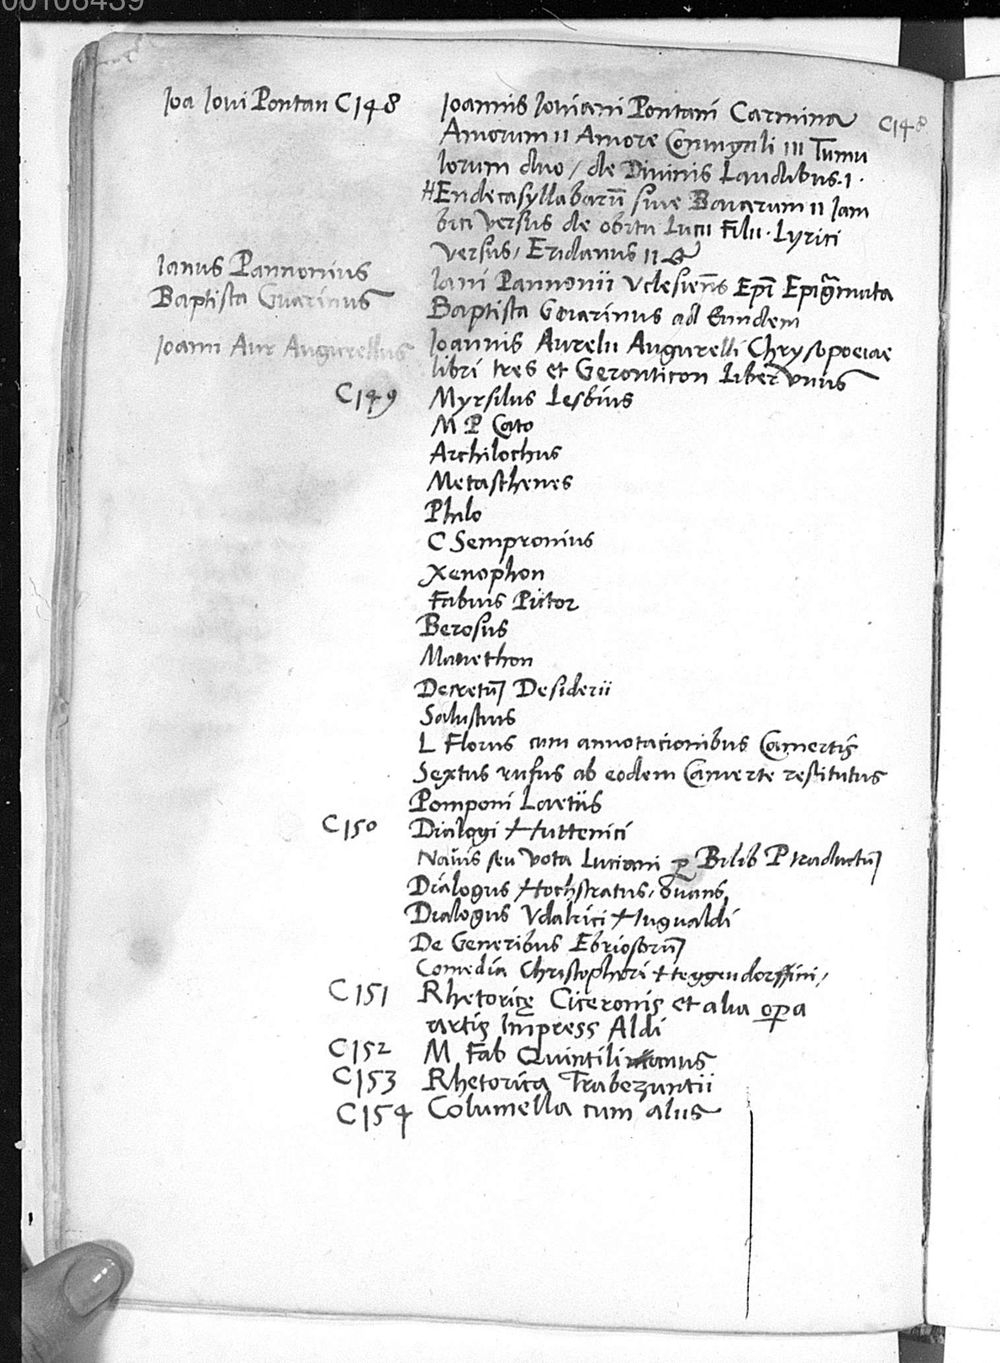 00106439
Ioa Ioui Pontan C148 Ioannis Iouiani Pontani Carmina C148
Amorum II Amore Coniugali III Tumu
lorum duo / de Diuinis Laudibus .1.
Hendecasyllabarū siue Baiarum II Iam
bici versus de obitu Lucii Filii. Lyrici
versus, Eridanus II
Ianus Pannonius Iani Pannonii Epī Epigr̄mata
Baptista Guarinus Baptista Guarinus ad Eundem
Ioann Aur Augurellus Ioannis Aurelii Augurelli Chrysopoeiae
libri tres et Geronticon Liber vnus
C149 Myrsilus Lesbius
M P Cato
Archilochus
Metasthenes
Philo
C Sempronius
Xenophon
Fabius Pictor
Berosus
Manethon
Decretū Desiderii
Salustius
L Florus cum annotacionibus Camertis
Sextus rufus ab eodem Camerte restitutus
Pomponi Laetus
C150 Dialogi Huttenici
Nauis seu vota Luciani Bilib P traductū
Dialogus Hochstratus, ouans,
Dialogus Vdalrici Hugualdi
De Generibus Ebriosorū
Comedia Christophori Heggendorffini,
C151 Rhetoricę Ciceronis et alia opa
artis Impress Aldi
C152 M Fab Quintilianus
C153 Rhetorica Trabezuntii
C154 Columella cum aliis